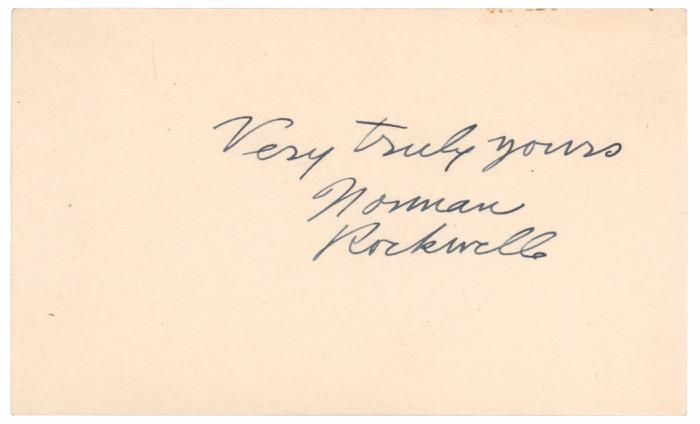 Very truly yours
Norman
Rockwell